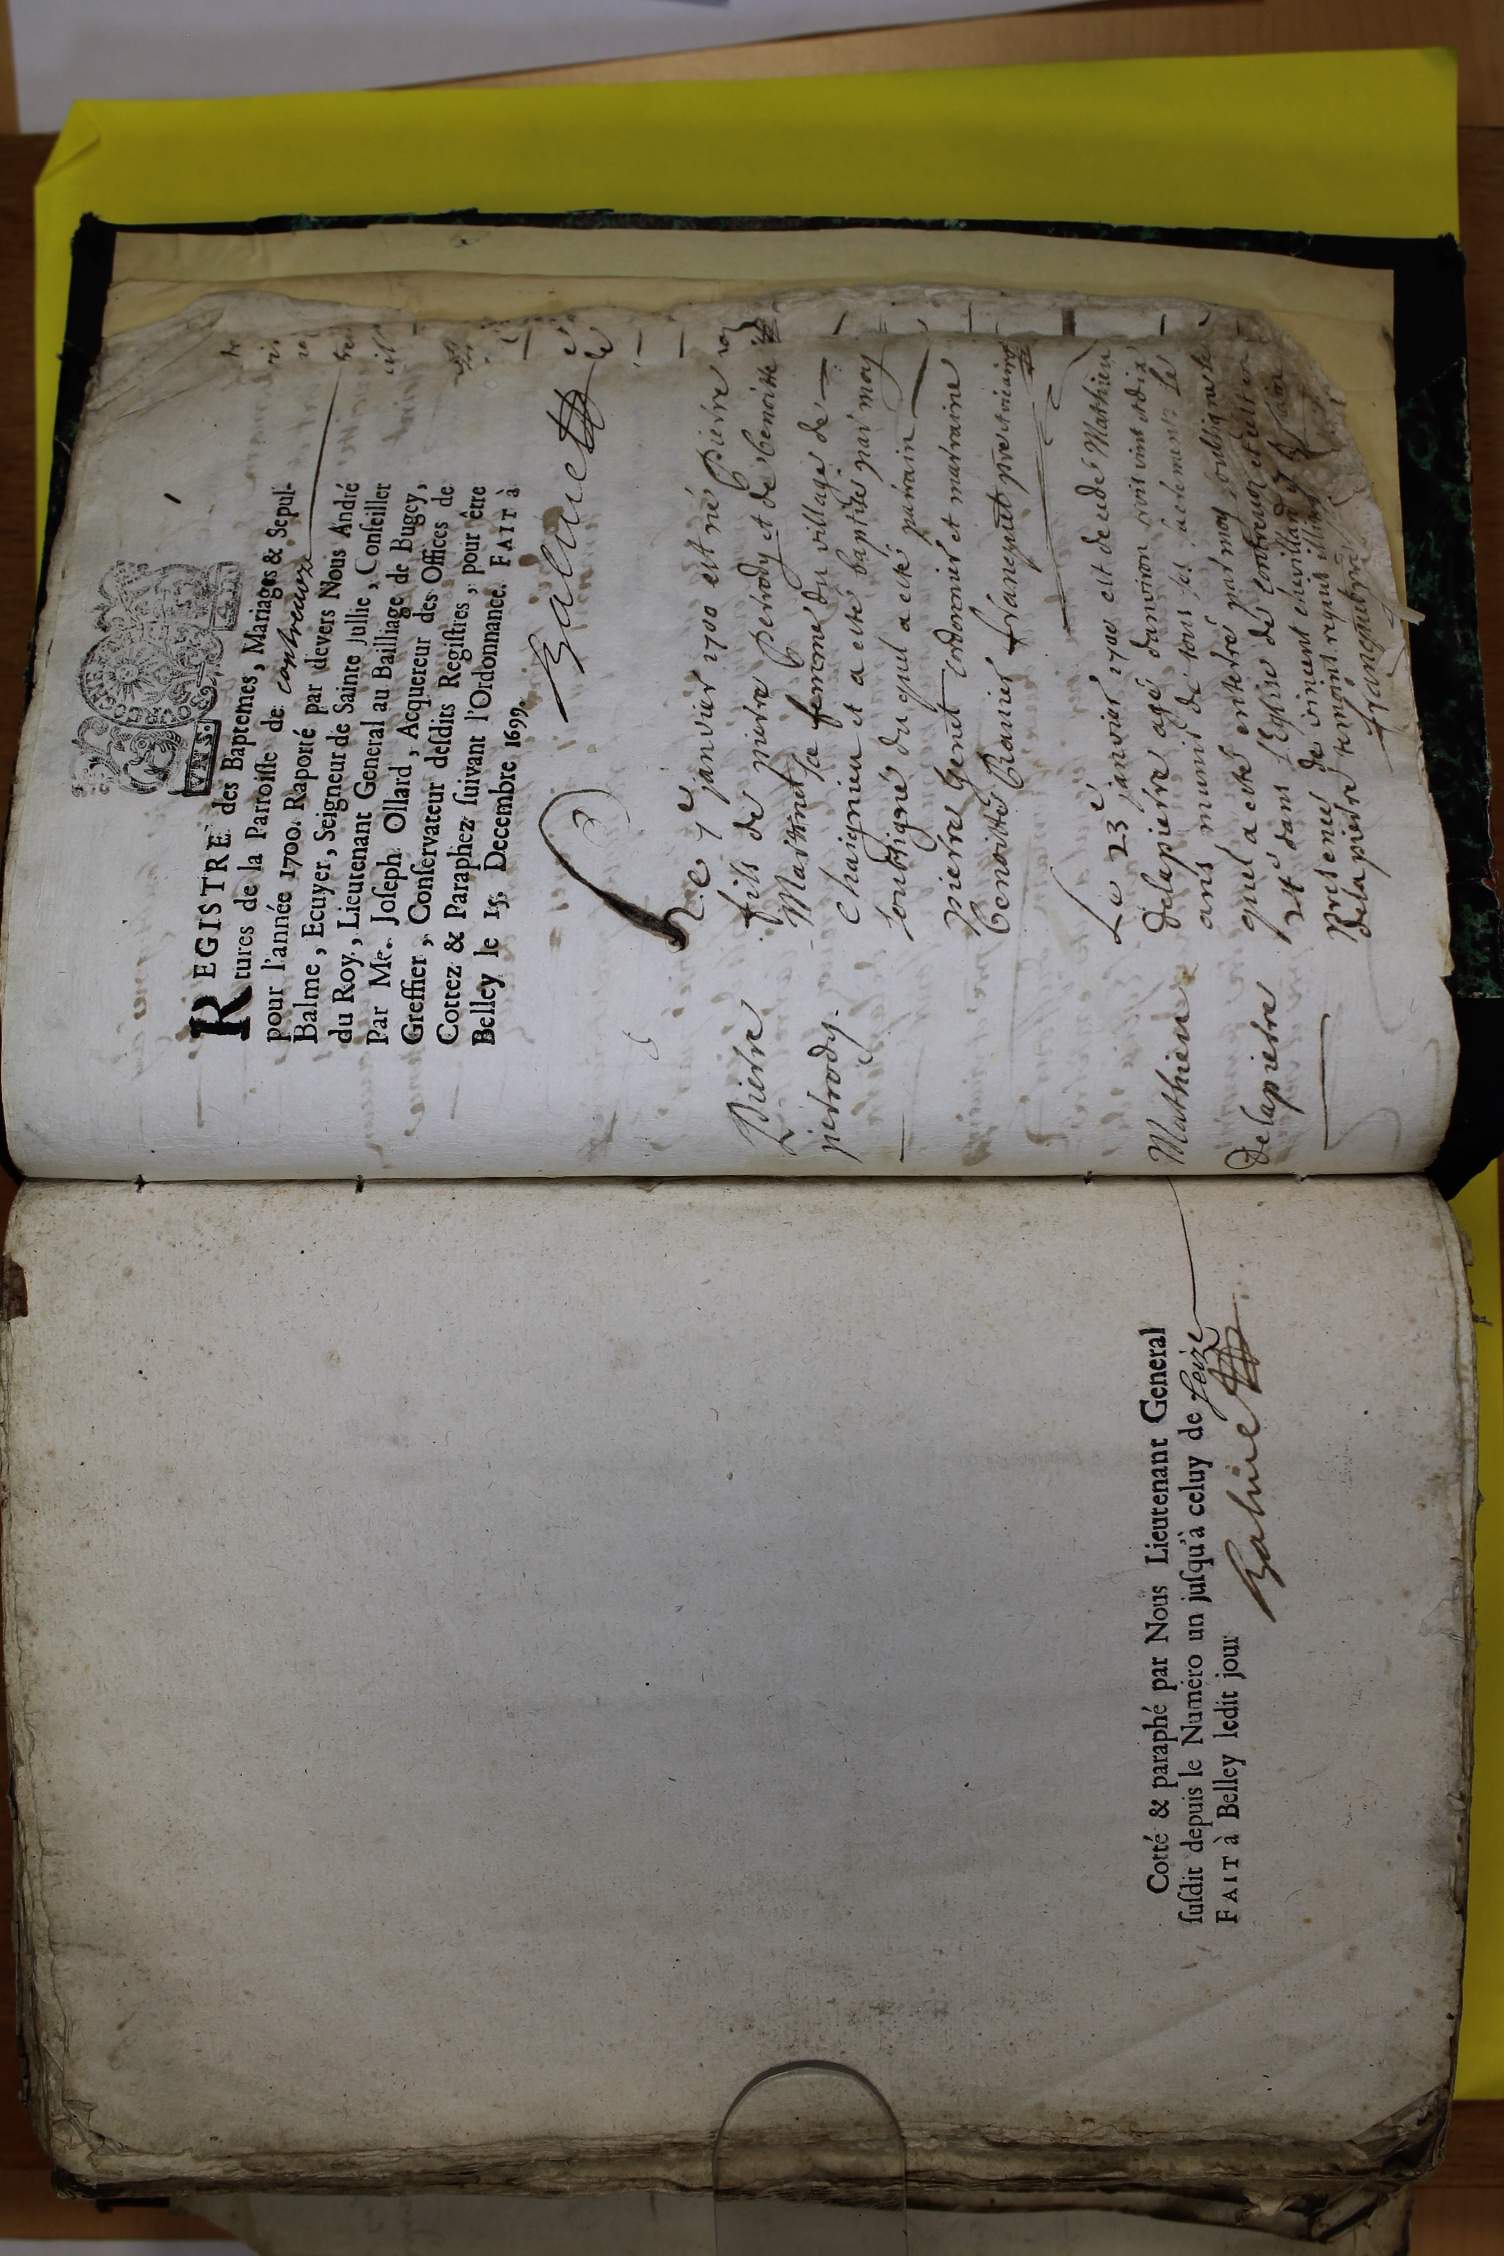 Cotté & paraphé par Nous Lieutenant General
ſuſdit depuis le Numero un juſqu'à celuy de seize
FAIT à Belley ledit jour
Balme
VNT.S.
REGISTRE des Baptemes, Mariages & Sepul-
tures de la Parroiſſe de contrevoz
pour l'année 1700. Raporté par devers Nous André
Balme, Ecuyer, Seigneur de Sainte Jullie, Conſeiller
du Roy, Lieutenant General au Bailliage de Bugey,
Par Me. Joſeph Ollard, Acquereur des Offices de
Greffier, Conſervateur deſdits Regiſtres, pour être
Cottez & Paraphez ſuivant l'Ordonnance. FAIT à
Belley le 15. Decembre 1699.
Balme
Pierre
perrody.
Le 7e janvier 1700 est né Pierre
fils de pierre Perrody et de benoitte
Martinet sa femme du village de
Chaignieu et a esté baptisé par moy
soubsigné du quel a esté parrain
pierre Genet Cordonnier et marraine
benoitte Ranier françquet pbre et vicaire
Mathieu
Delapierre
Le 23e janvier 1700 est decede Mathieu
Delapierre agé danviron
ans munit de tous ses sacrements le
quel a esté enterré par moy soubsigné le
24e dans l'Eglise de Contrevoz
presence de vincent
delapierre temoins requis
françquet